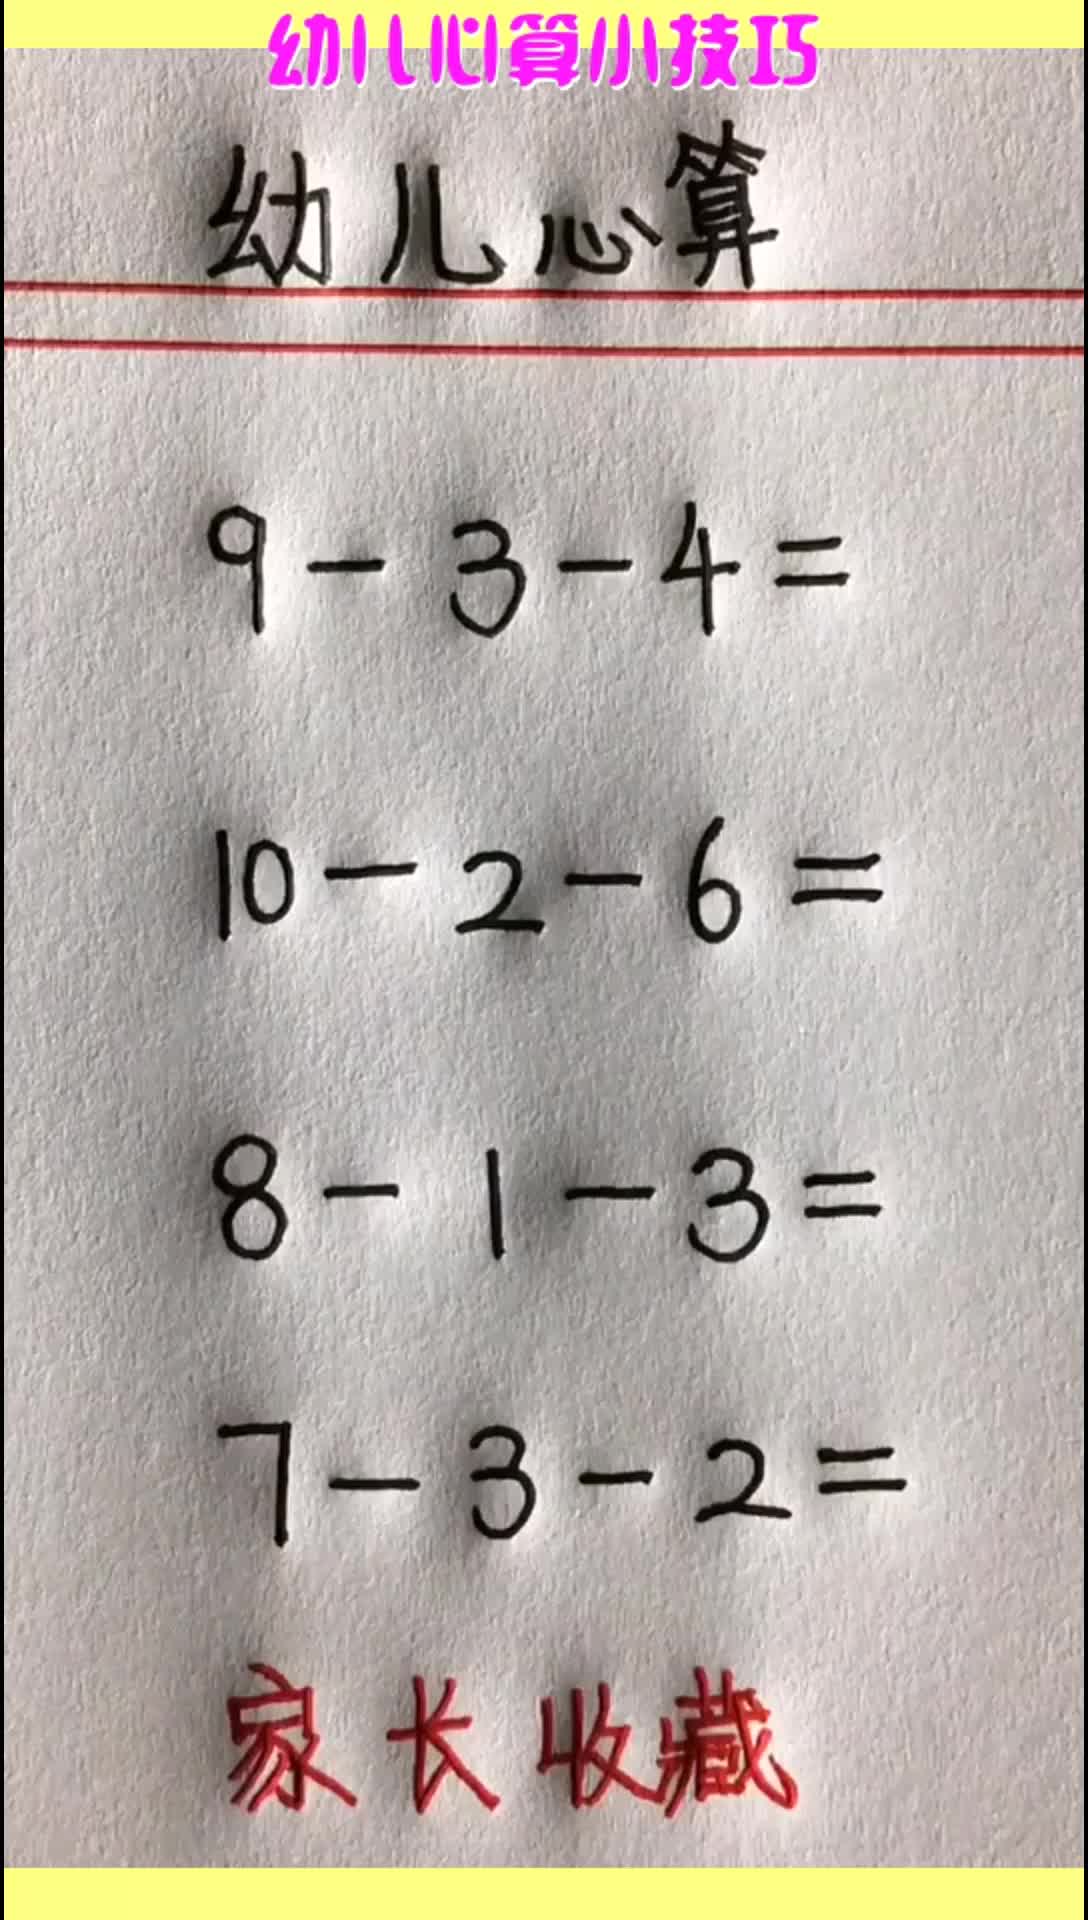 幼儿心算小技巧
幼儿心算
9-3-4=
10-2-6=
8-1-3=
7-3-2=
家长收藏